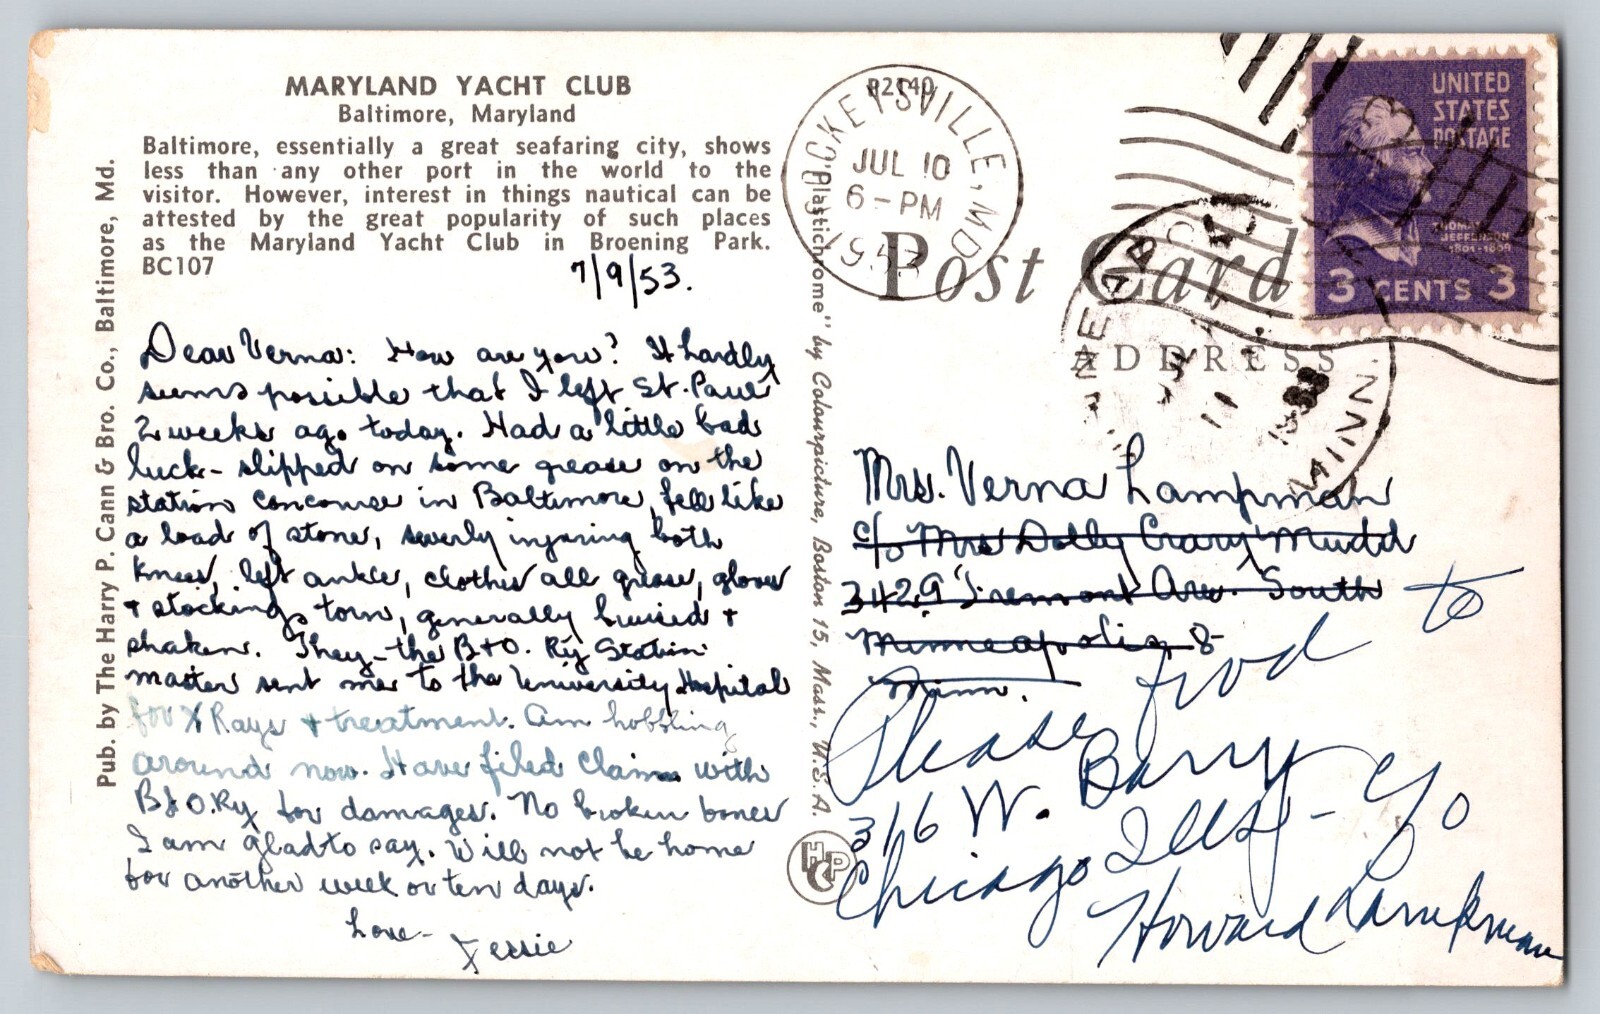 MARYLAND YACHT CLUB
Baltimore, Maryland
Baltimore, essentially a great seafaring city, shows
less than any other port in the world to the
visitor. However, interest in things nautical can be
attested by the great popularity of such places
as the Maryland Yacht Club in Broening Park.
BC107
7/9/53.
Dear Verna: How are you? It hardly
seems possible that I left St. Paul
2 weeks ago today. Had a little bad
luck - slipped on some grease on the
station concourse in Baltimore, fell like
a load of stone, severly injuring both
knees, left ankle, clothes all grease, gloves
+ stockings torn, generally bruised +
shaken. They - the B+O. Ry Station
master sent me to the University Hospital
for X Rays + treatment. Am hobbling
around now. Have filed claim with
B&O.Ry for damages. No broken bones
I am glad to say. Will not be home
for another week or ten days.
Love -
Jessie
Pub. by The Harry P. Cann & Bro. Co., Baltimore, Md.
"Plastichrome" by Colourpicture, Boston 15, Mass., U.S.A.
HPC
P2140
COCKEYSVILLE, MD.
JUL 10
6-PM
1953
Post Card
ADDRESS
UNITED
STATES
POSTAGE
THOMAS
JEFFERSON
1801-1809
3 CENTS 3
MINNEAPOLIS
MINN.
JUL
11
Mrs. Verna Lampman
c/o Mrs Dolly Crary Mudd
3429 Fremont Ave. South
Minneapolis 8
Minn.
Please fwd to
316 W. Barry
Chicago Ills - c/o
Howard Lampman